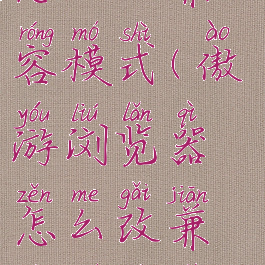 róng mó shì ào
容模式(傲
yóu liú lǎn qì
游浏览器
zěn me gǎi jiān
怎么改兼